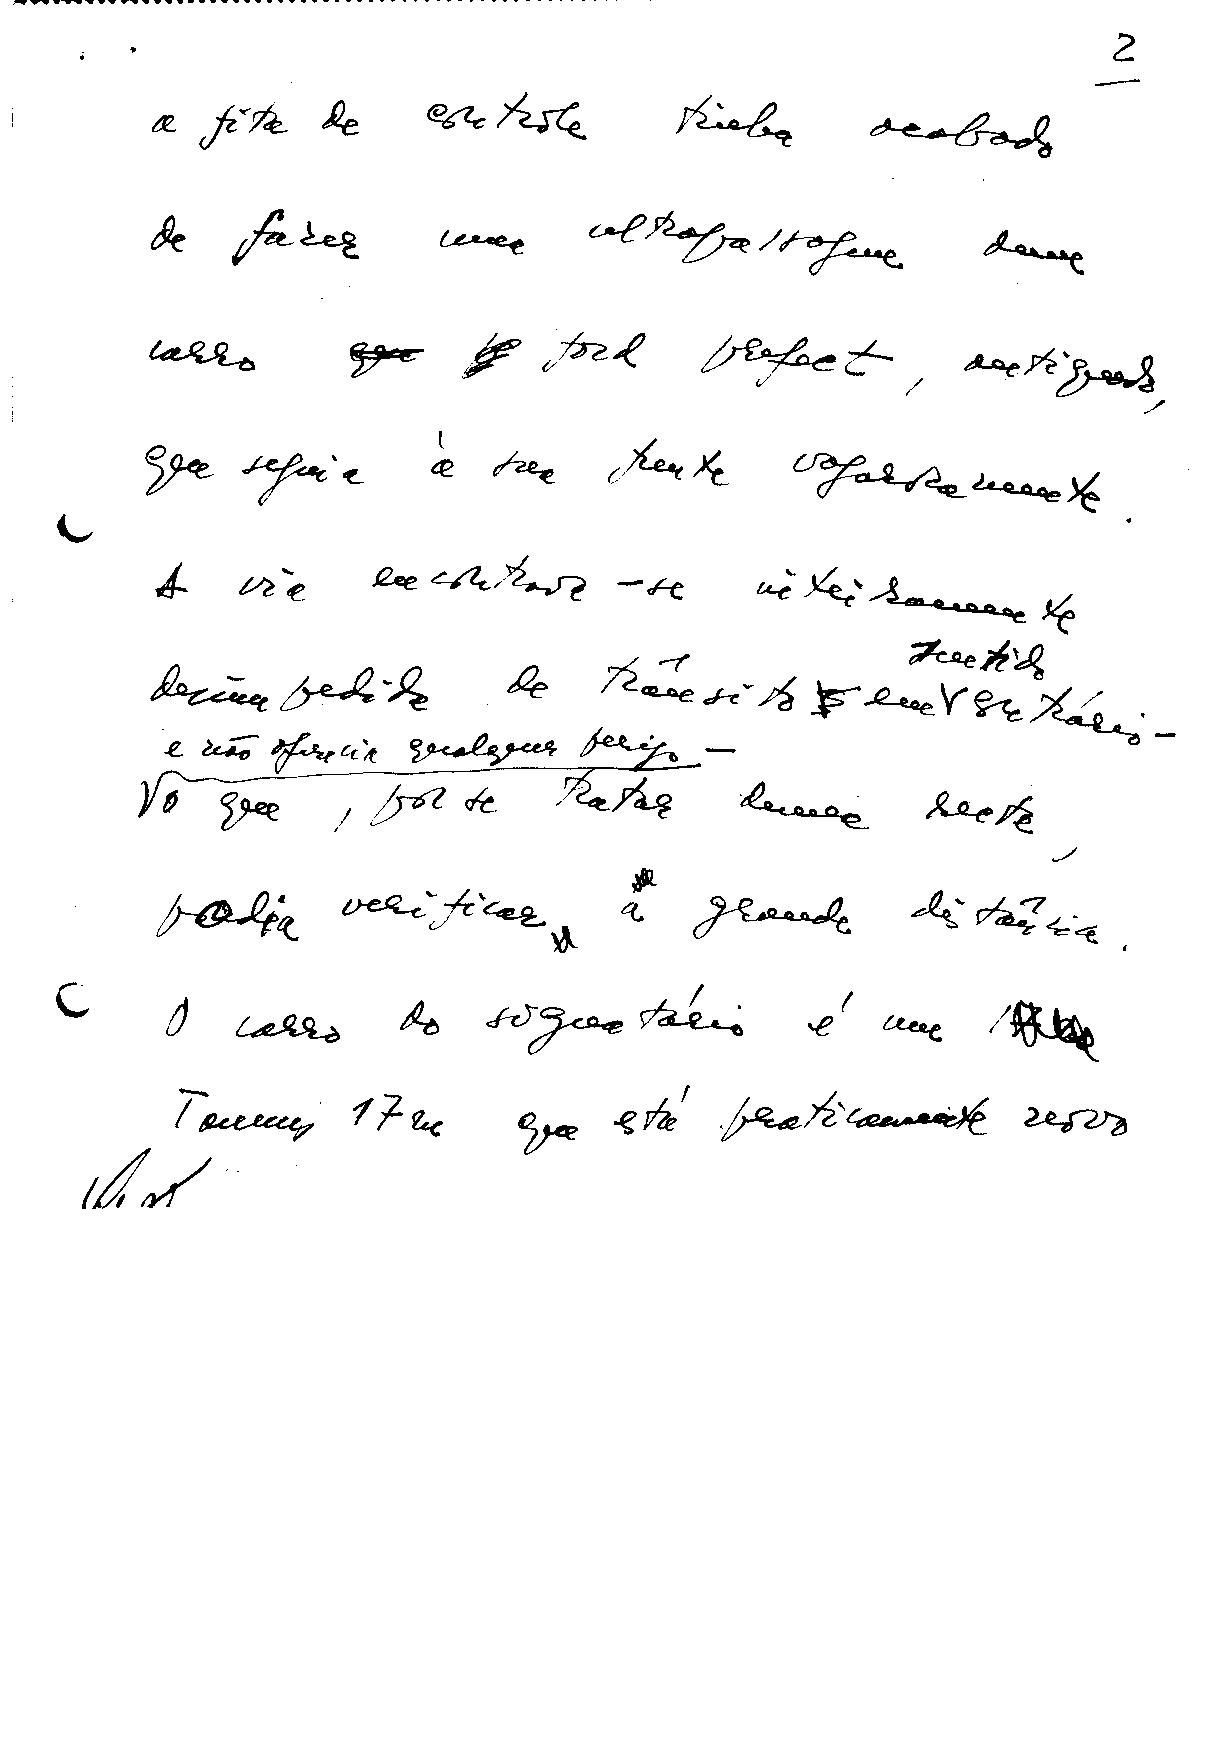 2
a fita de contrôle tinha acabado
de fazer uma ultrapassagem dum
carro ford prefect, antiquado,
que seguia à sua frente vagarosamente.
A via encontrava-se inteiramente
sentido
desimpedida de trânsito em contrário -
e não oferecia qualquer perigo -
o que, por se tratar duma recta,
podia verificar a grande distância.
O carro do signatário é um
Taunus 17m que está praticamente novo